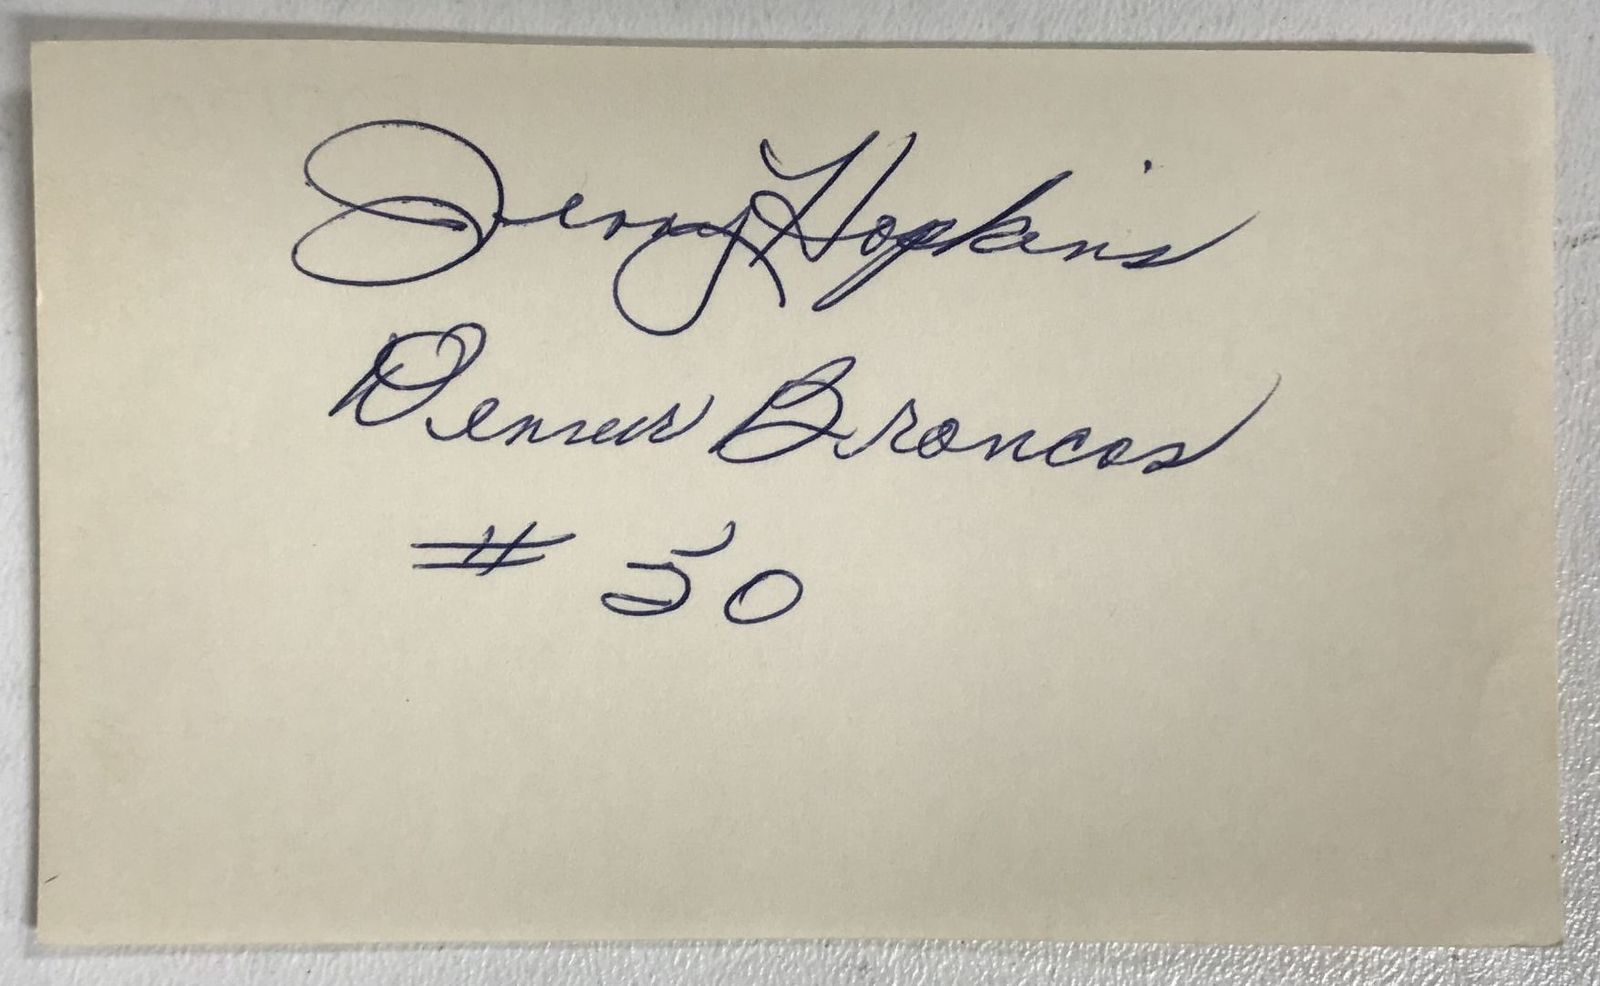 Jerry Hopkins
Denver Broncos
# 50